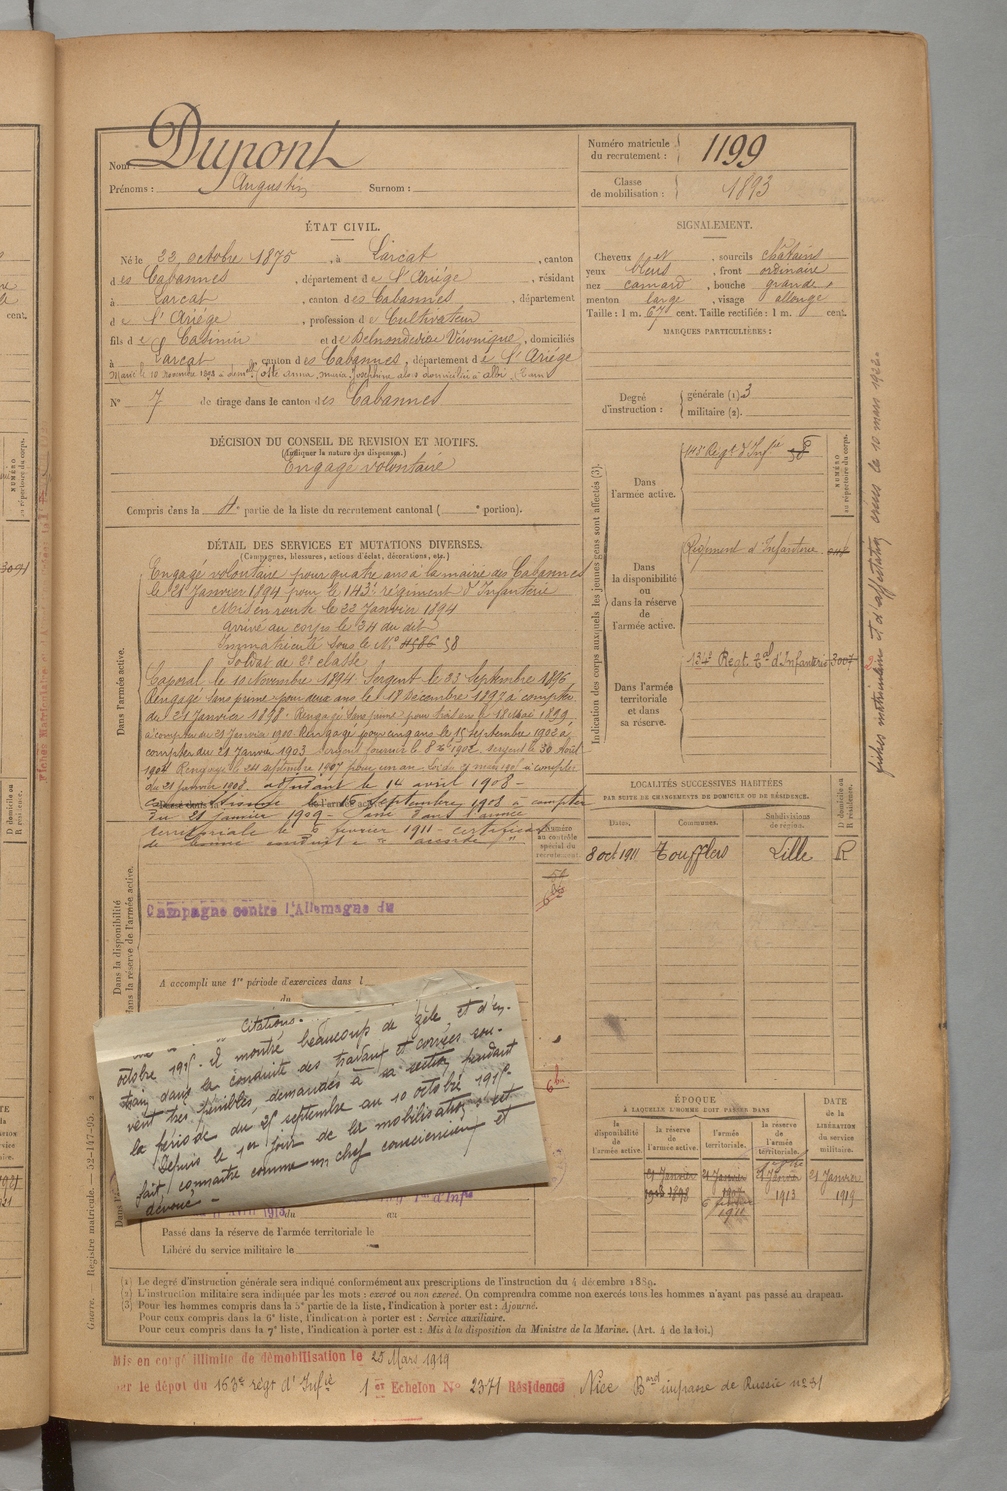 Nom : Dupont
Prénoms : Augustin Surnom :
Numéro matricule du recrutement : 1199
Classe de mobilisation : 1893
ÉTAT CIVIL.
Né le 22 octobre 1875, à Larcat, canton
des Cabannes, département de l'Ariége, résidant
à Larcat, canton des Cabannes, département
de l'Ariége, profession de Cultivateur
fils de Casimir et de Véronique, domiciliés
à Larcat canton des Cabannes, département de l'Ariége
Marié le 10 Novembre
N° 7 de tirage dans le canton des Cabannes
SIGNALEMENT.
Cheveux et, sourcils châtains
yeux bleus, front ordinaire
nez camard, bouche grande,
menton large, visage allongé
Taille : 1 m. 67 cent. Taille rectifiée : 1 m. cent.
MARQUES PARTICULIÈRES :
Degré d'instruction : générale (1) 3
militaire (2).
DÉCISION DU CONSEIL DE REVISION ET MOTIFS.
(Indiquer la nature des dispenses.)
Engagé volontaire
Compris dans la 4e partie de la liste du recrutement cantonal ( e portion).
DÉTAIL DES SERVICES ET MUTATIONS DIVERSES.
(Campagnes, blessures, actions d'éclat, décorations, etc.)
Dans l'armée active.
Engagé volontaire pour quatre ans à la mairie des Cabannes
le 21 Janvier 1894 pour le 143e régiment d'Infanterie
Mis en route le 22 Janvier 1894
Arrivé au corps le 24 du dit
Immatriculé sous le N° 4586 58
Soldat de 2e classe
Caporal le 10 Novembre 1894. Sergent le 23 Septembre 1896
Rengagé sans prime pour deux ans le 18 Décembre 1897 à compter
du 21 Janvier 1898. Rengagé sans prime pour trois ans le 18 Mai 1899
à compter du 21 Janvier 1900. Rengagé pour cinq ans le 15 septembre 1902 à
compter du 21 Janvier 1903 sergent fourrier le 8 1902. sergent le 30 Août
1904 Rengagé le 24 septembre 1907 pour un an à compter
du 21 janvier 1908. adjudant le 14 avril 1908 -
septembre 1908 à compter
du 21 janvier 1909 - Passé dans l'armée
territoriale le 6 février 1911 - certificat
de bonne conduite "accordé"
Dans la disponibilité ou dans la réserve de l'armée active.
Numéro au contrôle spécial du recrutement
Campagne contre l'Allemagne du
A accompli une 1re période d'exercices dans l
du
Citations.
octobre 1915. Il montré beaucoup de zèle et d'en-
train dans la conduite des travaux et corvées sou-
vent très pénibles demandés à sa section pendant
la période du 25 septembre au 10 octobre 1915.
Depuis le 1er jour de la mobilisation s'est
fait connaître comme un chef consciencieux et
dévoué -
du au
Passé dans la réserve de l'armée territoriale le
Libéré du service militaire le
Indication des corps auxquels les jeunes gens sont affectés (3).
Dans l'armée active.
143e Régt d'Infie 58
NUMÉRO au répertoire du corps.
Dans la disponibilité ou dans la réserve de l'armée active.
Régiment d'Infanterie
Dans l'armée territoriale et dans sa réserve.
134e Régt Tal d'Infanterie 3007
LOCALITÉS SUCCESSIVES HABITÉES
PAR SUITE DE CHANGEMENTS DE DOMICILE OU DE RÉSIDENCE.
Dates. Communes. Subdivisions de région. D domicile ou R résidence.
8 oct 1911 Toufflers Lille R
ÉPOQUE
À LAQUELLE L'HOMME DOIT PASSER DANS
la disponibilité de l'armée active. la réserve de l'armée active. l'armée territoriale. la réserve de l'armée territoriale. DATE de la LIBÉRATION du service militaire.
21 Janvier 1898 21 Janvier 1907 21 Janvier 1913 21 Janvier 1919
6 février 1911
(1) Le degré d'instruction générale sera indiqué conformément aux prescriptions de l'instruction du 4 décembre 1889.
(2) L'instruction militaire sera indiquée par les mots : exercé ou non exercé. On comprendra comme non exercés tous les hommes n'ayant pas passé au drapeau.
(3) Pour les hommes compris dans la 5e partie de la liste, l'indication à porter est : Ajourné.
Pour ceux compris dans la 6e liste, l'indication à porter est : Service auxiliaire.
Pour ceux compris dans la 7e liste, l'indication à porter est : Mis à la disposition du Ministre de la Marine. (Art. 4 de la loi.)
Mis en congé illimité de démobilisation le 25 Mars 1919
par le dépot du 163e régt d'Infie 1er Echelon N° 2371 Résidence Nice Bard impasse de Russie n° 31
Guerre. — Registre matricule. — 52-147-95.
fiches matricules et d'affectation créées le 10 mars 1922.